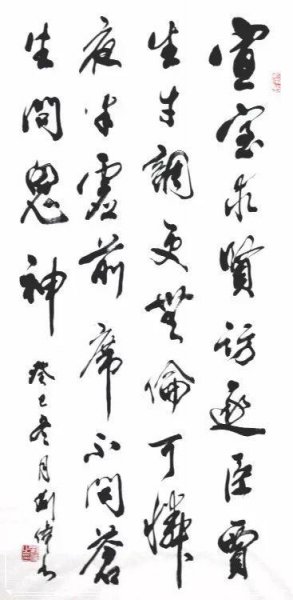 宣室求賢訪逐臣賈
生才調更無倫可憐
夜半虛前席不問蒼
生問鬼神
癸巳冬月